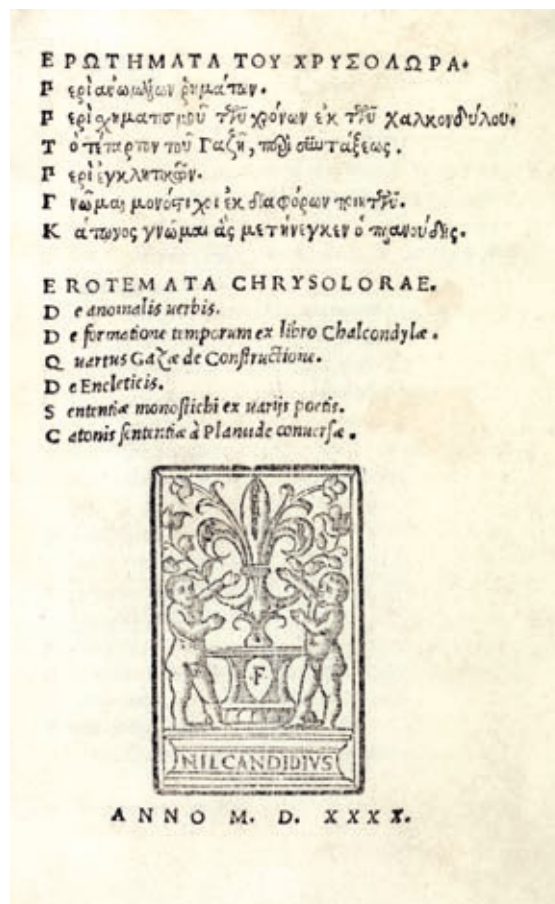 ΕΡΩΤΗΜΑΤΑ ΤΟΥ ΧΡΥΣΟΛΩΡΑ.
Περὶ ἀνωμάλων ῥημάτων.
Περὶ σχηματισμοῦ τῶν χρόνων ἐκ τῶν χαλκονδύλου.
Τὸ τέταρτον τοῦ Γαζῆ, περὶ συντάξεως.
Περὶ ἐγκλητικῶν.
Γνῶμαι μονόστιχοι ἐκ διαφόρων ποιητῶν.
Κάτωνος γνῶμαι ἃς μετήνεγκεν ὁ πλανούδης.
EROTEMATA CHRYSOLORAE.
De anomalis uerbis.
De formatione temporum ex libro Chalcondylæ.
Quartus Gazæ de Constructione.
De Encleticis.
Sententiæ monostichi ex uarijs poetis.
Catonis sententiæ à Planude conuersæ.
F
NIL CANDIDIVS
ANNO M. D. XXXX.